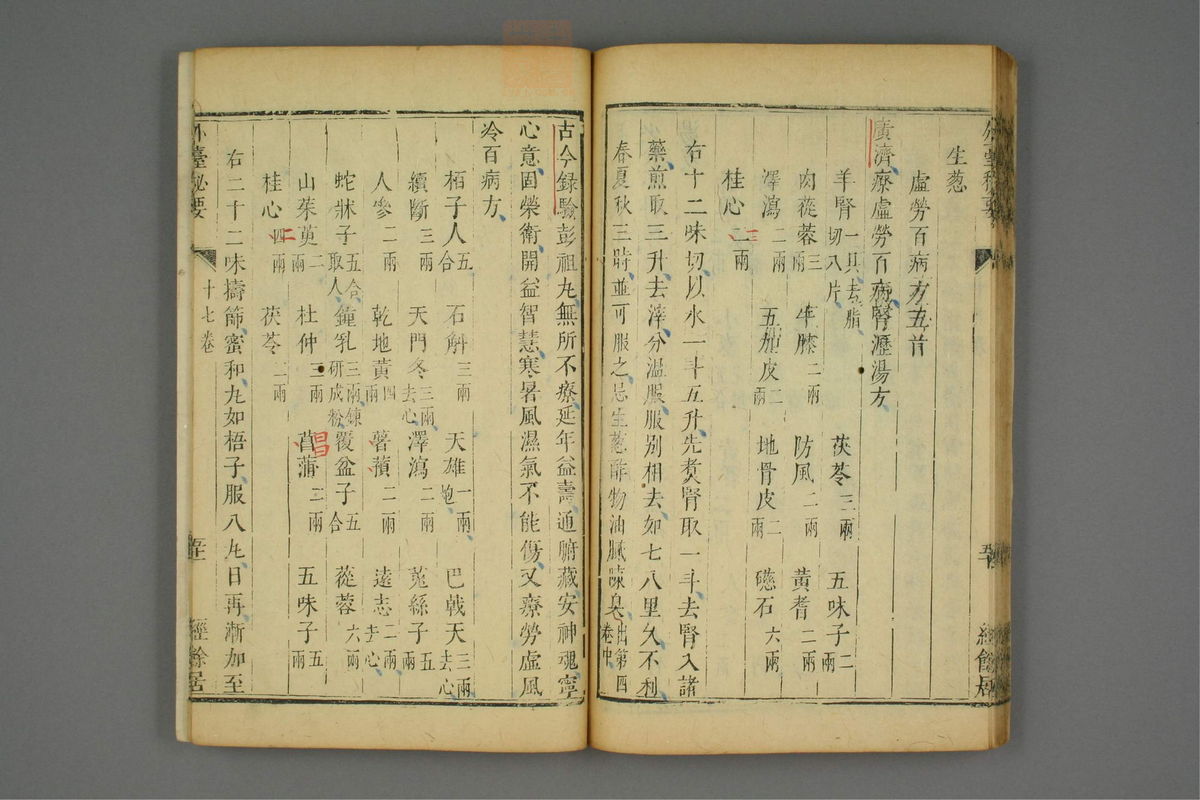 生葱
虛勞百病方五首
廣濟療虛勞百病腎瀝湯方
羊腎一具去脂切八片 茯苓三兩 五味子二兩
肉蓯蓉三兩 牛膝二兩 防風二兩 黃耆二兩
澤瀉二兩 五加皮二兩 地骨皮二兩 磁石六兩
桂心二兩 三
右十二味切以水一斗五升先煑腎取一斗去腎入諸
藥煎取三升去滓分溫服服別相去如七八里久不利
春夏秋三時並可服之忌生葱酢物油膩陳臭出第四卷中
古今録驗彭祖丸無所不療延年益壽通腑藏安神魂寧
心意固榮衛開益智慧寒暑風濕氣不能傷又療勞虛風
冷百病方
栢子人五合 石斛三兩 天雄一兩炮 巴戟天三兩去心
續斷三兩 天門冬三兩去心 澤瀉二兩 菟絲子五兩
人參二兩 乾地黃四兩 薯蕷二兩 遠志二兩去心
蛇牀子五合取人 鐘乳三兩鍊研成粉 覆盆子五合 蓯蓉六兩
山茱萸二兩 杜仲三兩 菖蒲二兩 五味子五兩
昌
桂心四兩 二 茯苓二兩
右二十二味擣篩蜜和丸如梧子服八丸日再漸加至
外臺秘要
十七卷
經餘居